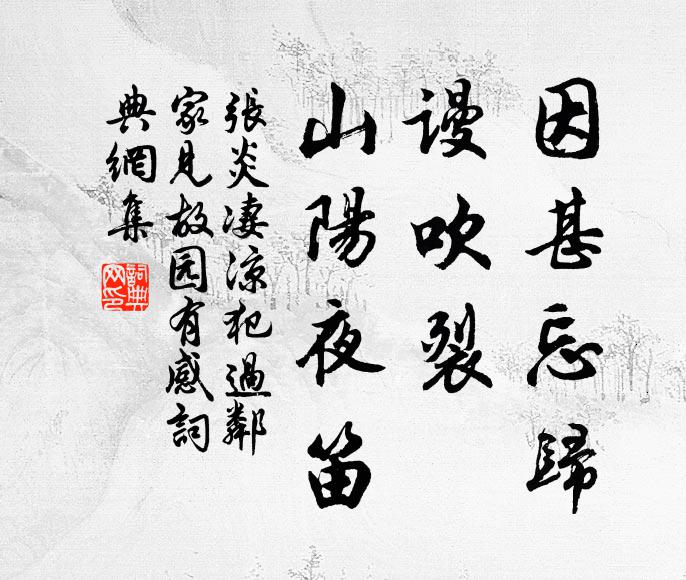 因甚忘歸
謾吹裂
山陽夜笛
張炎凄涼犯過鄰
家見故园有感詞
典網集
詞典
网印